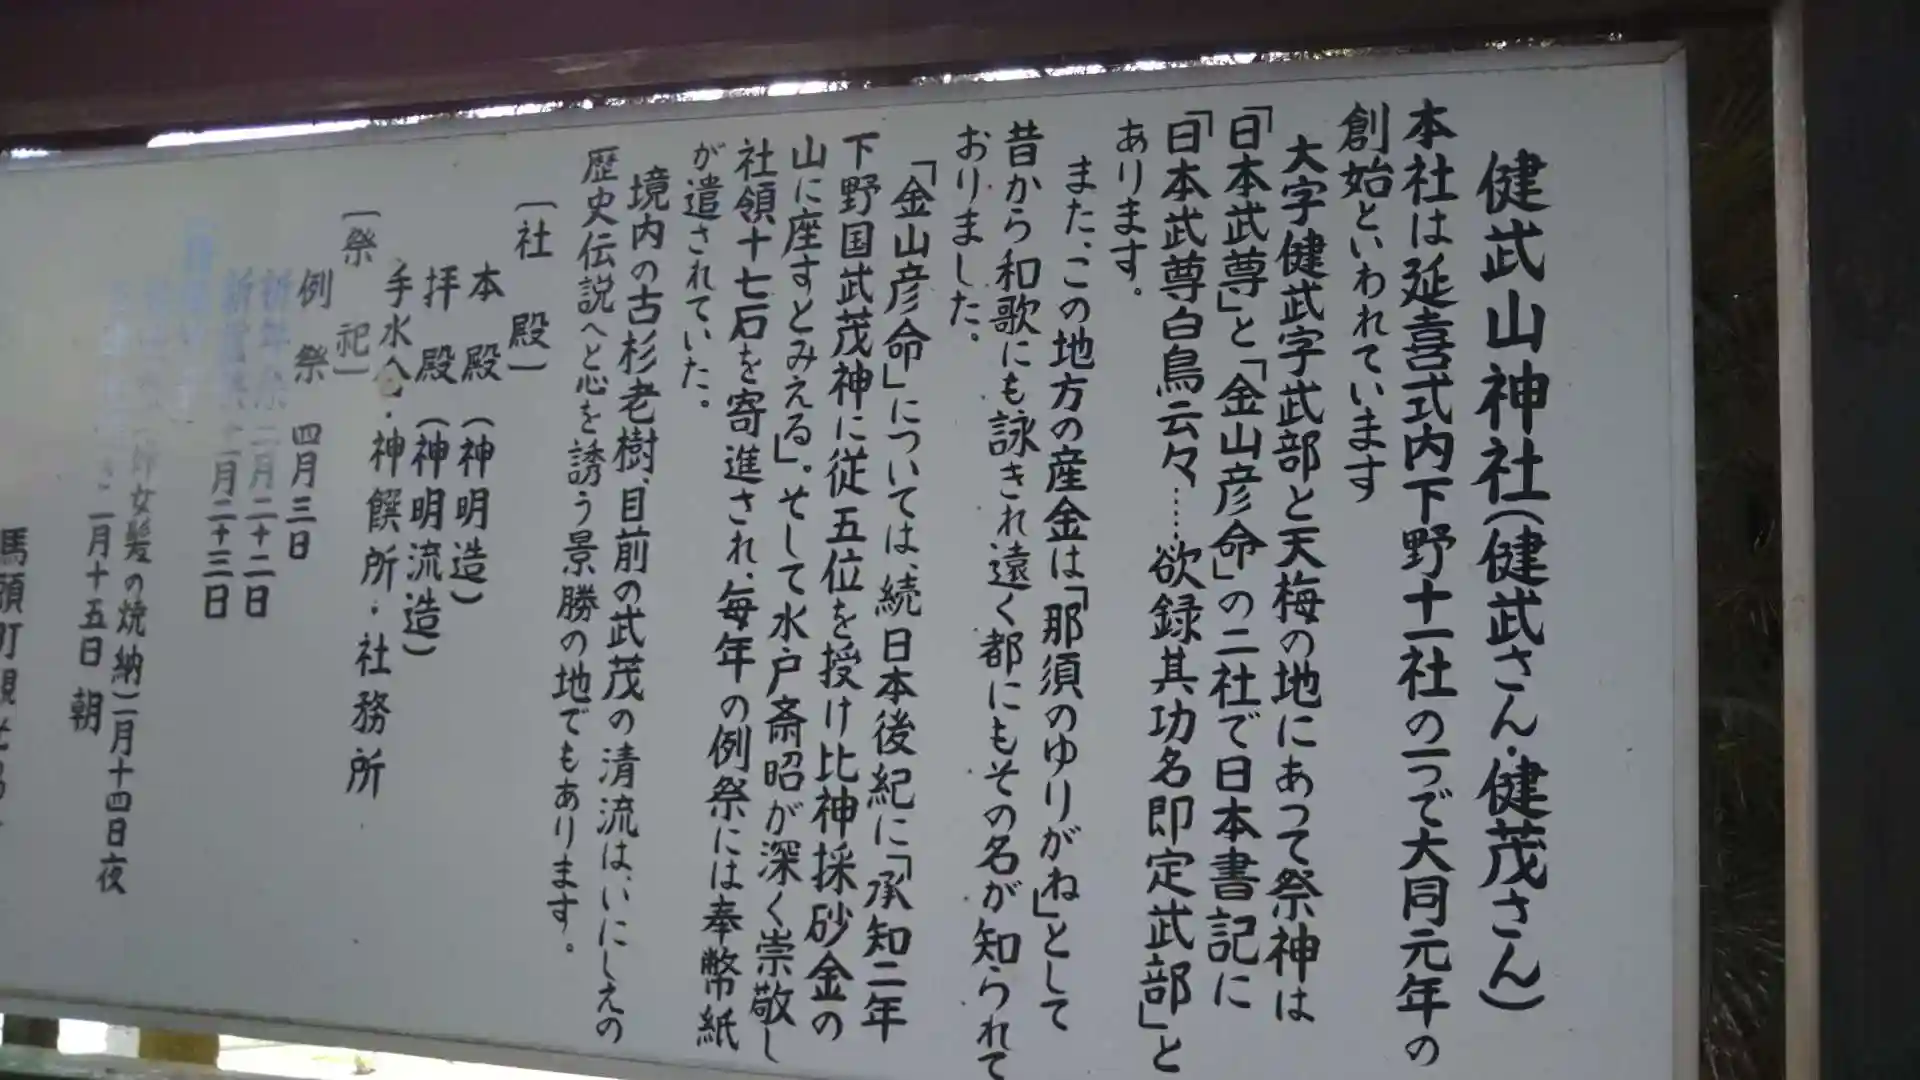 健武山神社(健武さん・健茂さん)
本社は延喜式内下野十一社の一つで大同元年の
創始といわれています
大字健武字武部と天梅の地にあって祭神は
「日本武尊」と「金山彦命」の二社で日本書記に
「日本武尊白鳥云々……欲録其功名即定武部」と
あります。
また、この地方の産金は「那須のゆりがね」として
昔から和歌にも詠され遠く都にもその名が知られて
おりました。
「金山彦命」については、続日本後紀に「承知二年
下野国武茂神に従五位を授け比神採砂金の
山に座すとみえる」。そして水戸斉昭が深く崇敬し
社領十七石を寄進され、毎年の例祭には奉幣紙
が遣されていた。
境内の古杉老樹、目前の武茂の清流は、いにしえの
歴史伝説へと心を誘う景勝の地でもあります。
〔社 殿〕
本殿(神明造)
拝殿(神明流造)
手水舎・神饌所・社務所
〔祭 祀〕
例祭 四月三日
祈年祭 二月二十二日
新嘗祭 十一月二十三日
女髪の焼納)二月十四日夜
二月十五日 朝
馬頭町観光